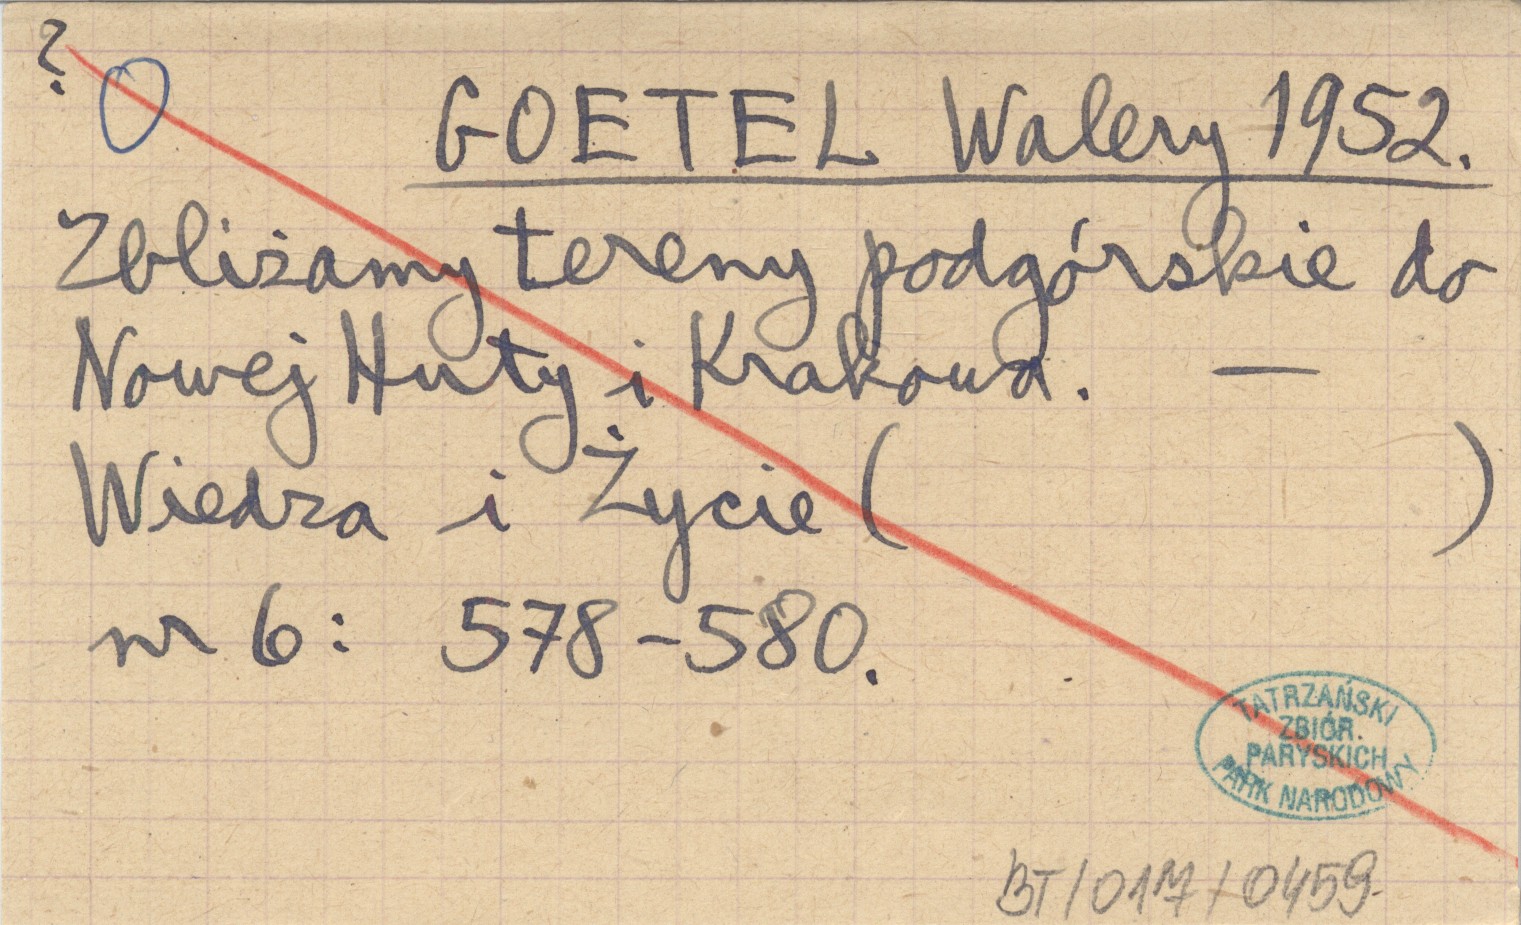 ?
0
GOETEL Walery 1952.
Zbliżamy tereny podgórskie do
Nowej Huty i Krakowa. —
Wiedza i Życie ( )
nr 6: 578-580.
TATRZAŃSKI
ZBIÓR.
PARYSKICH
PARK NARODOWY
BT/017/0459